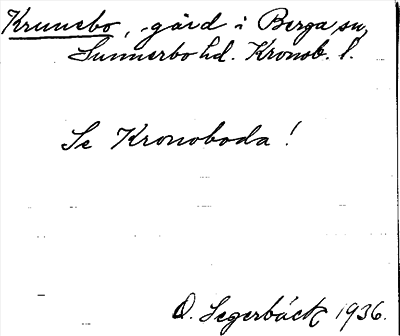 Krunebo, gård i Berga sn,
Sunnerbo hd. Kronob. l.
Se Kronoboda!
O. Segerbäck 1936.